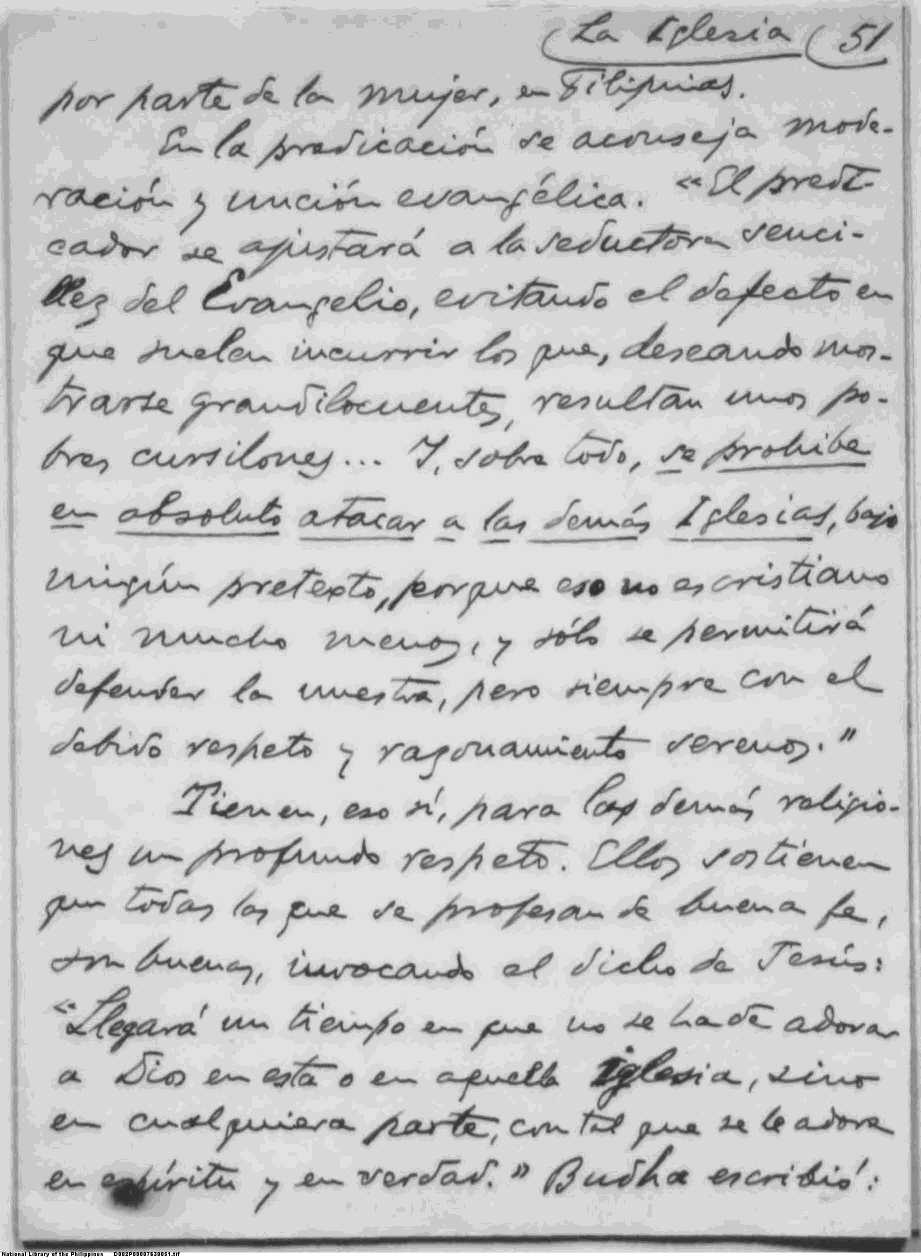 La Iglesia 51
por parte de la mujer, en Filipinas.
En la predicación se aconseja mode-
ración y unción evangélica. «El predi-
cador se ajustará a la seductora senci-
llez del Evangelio, evitando el defecto en
que suelen incurrir los que, deseando mos-
trarse grandilocuentes, resultan unos po-
bres cursilones... Y, sobre todo, se prohibe
en absoluto atacar a las demás Iglesias, bajo
ningún pretexto, porque eso no es cristiano
ni mucho menos, y sólo se permitirá
defender la nuestra, pero siempre con el
debido respeto y razonamiento serenos."
Tienen, eso sí, para las demás religio-
nes un profundo respeto. Ellos sostienen
que todas las que se profesan de buena fe,
son buenas, invocando el dicho de Jesús:
"Llegará un tiempo en que no se ha de adorar
a Dios en esta o en aquella iglesia, sino
en cualquiera parte, con tal que se le adore
en espíritu y en verdad." Budha escribió:
National Library of the Philippines D002P00007630051.tif